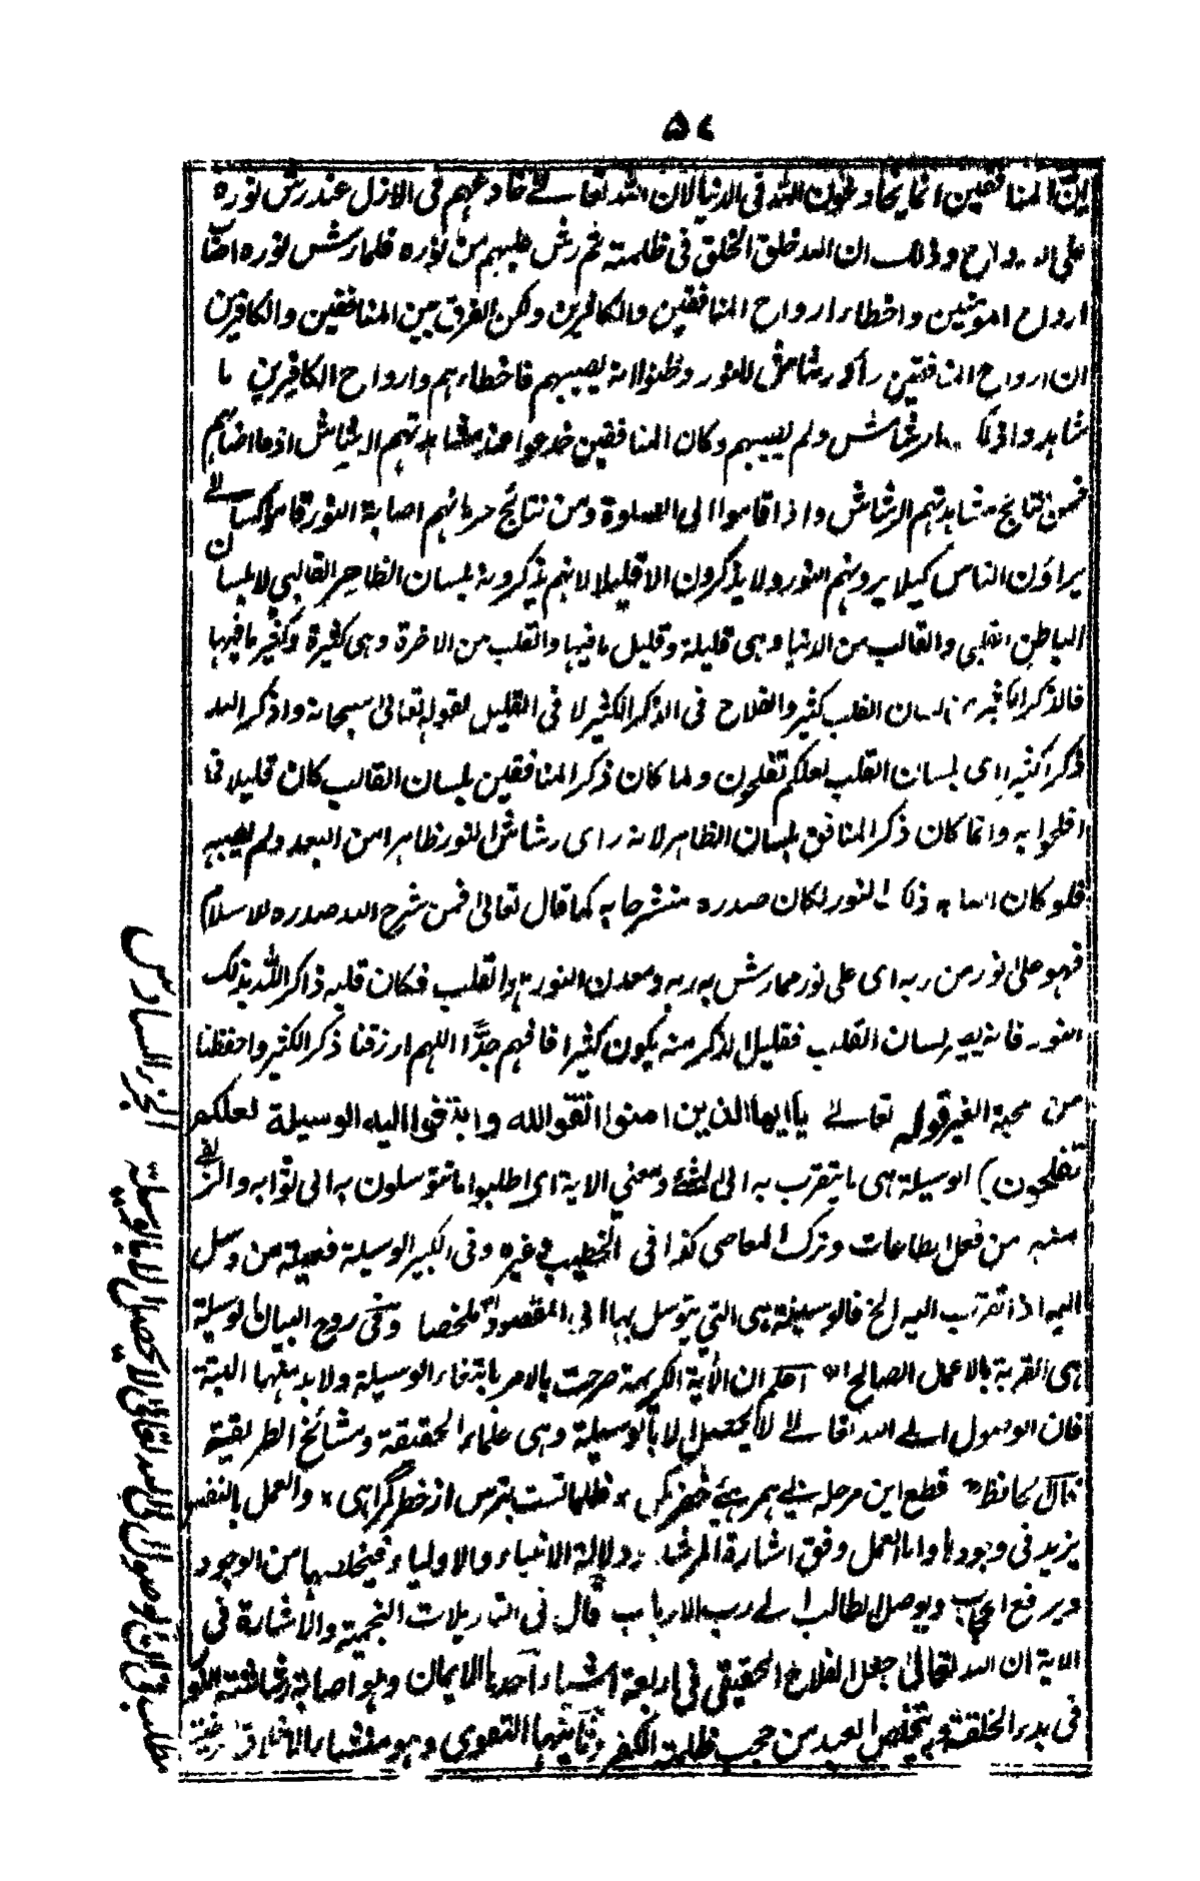 ٥٧
ان المنافقين انما يخادعون الله فى الدنيا لان الله تعالے خادعهم فى الازل عند رش نوره
على الارواح وذلك ان الله خلق الخلق فى ظلمة ثم رش عليهم من نوره فلما رش نوره اصاب
ارواح المؤمنين واخطاء ارواح المنافقين والكافرين ولكن الفرق بين المنافقين والكافرين
ان ارواح المنافقين رأوا رشاش النور وظنوا انه يصيبهم فاخطاءهم وارواح الكافرين ما
شاهدوا ذلك الرشاش ولم يصبهم وكان المنافقين خدعوا عند مشاهدتهم الرشاش اذ ما اصابهم
فمن نتائج مشاهدتهم الرشاش واذا قاموا الى الصلوة ومن نتائج حرمانهم اصابة النور قاموا كسالے
يراؤن الناس كيلا يرونهم النور ولا يذكرون الا قليلا لانهم يذكرونه بلسان الظاهر القالبى لا بلسان
الباطن القلبى والقالب من الدنيا وهى قليلة وقليل ما فيها والقلب من الاخرة وهى كثيرة وكثير ما فيها
فالذكر الكثير من لسان القلب كثير والفلاح فى الذكر الكثير لا فى القليل لقوله تعالىٰ سبحانه واذكر الله
ذكرا كثيرا اى بلسان القلب لعلكم تفلحون ولما كان ذكر المنافقين بلسان القالب كان قليلا فما
افلحوا به وانما كان ذكر المنافق بلسان الظاهر لانه راى رشاش النور ظاهرا من البعد ولم يصبه
فلو كان اصابه ذلك النور لكان صدره منشرحا به كما قال تعالىٰ فمن شرح الله صدره للاسلام
فهو على نور من ربه اى على نور مما رش به ربه ومعدن النور هو القلب فكان قلبه ذاكر الله بذلك
النور فانه يصير لسان القلب فقليل الذكر منه يكون كثيرا فافهم جدًّا اللهم ارزقنا ذكر الكثير واحفظنا
من محبة الغير قوله تعالے يا ايها الذين امنوا اتقوا الله وابتغوا اليه الوسيلة لعلكم
تفلحون) الوسيلة هى ما يتقرب به الى الشئ ومعنى الاية اى اطلبوا ما تتوسلون به الى ثوابه والزلفى
منه من فعل الطاعات وترك المعاصى كذا فى الخطيب وغيره وفى الكبير الوسيلة فعيلة من وسل
اليه اذا تقرب اليه الخ فالوسيلة هى التى يتوسل بها الى المقصود ملخصا وفى روح البيان الوسيلة
هى القربة بالاعمال الصالحات اعلم ان الأية الكريمة صرحت بالامر بابتغاء الوسيلة ولا بد منها البتة
فان الوصول الے الله تعالے لا يحصل الا بالوسيلة وهى علماء الحقيقة ومشائخ الطريقة
قال الحافظ قطع اين مرحله بے همرهئے خضر مكن * ظلماتست بترس از خطر گمراهى * والعمل بالنفس
يزيد فى وجودها واما العمل وفق اشارة المرشد ودلالة الانبياء والاولياء فيخلصها من الوجود
ويرفع الحجاب ويوصل الطالب الے رب الارباب قال فى التاويلات النجمية والاشارة فى
الاية ان الله تعالىٰ جعل الفلاح الحقيقى فى اربعة اشياء احدها الايمان وهو اصابة رشاشة النور
فى بدء الخلقة وبه تخلص العبد من حجب ظلمة الكفر وثانيها التقوى وهو منشاء الاخلاق
الجزء السادس
مطلب فى ان الوصول الى الله تعالى لا يحصل الا بالوسيلة